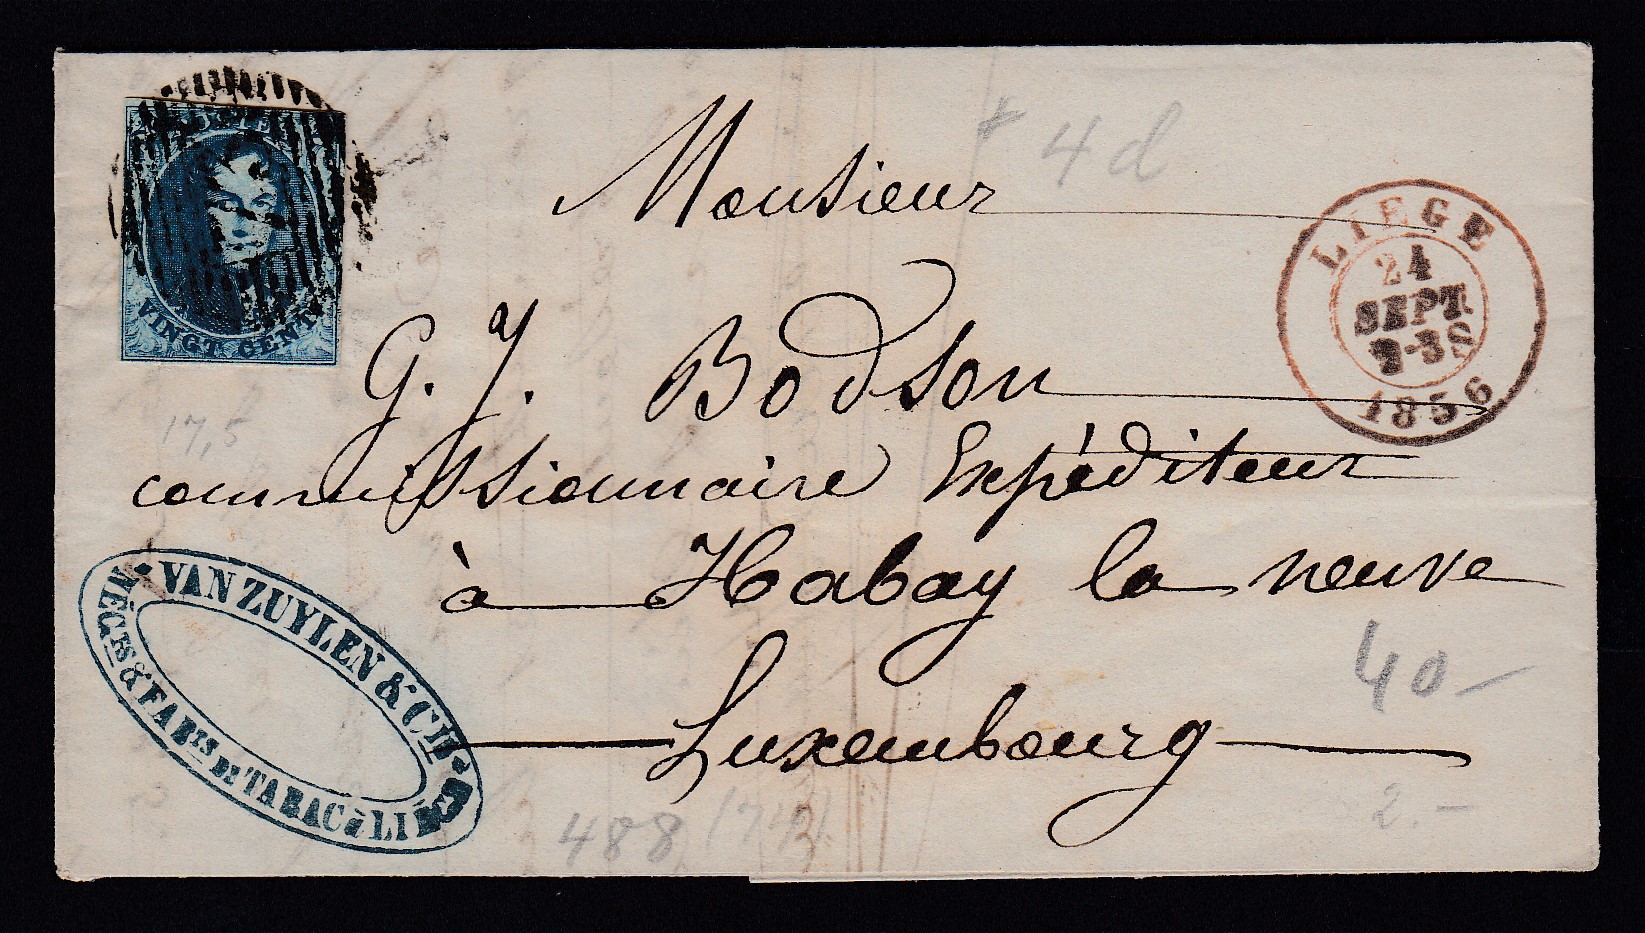 POSTES
VINGT CENTS
Monsieur
G. J. Bodson
commissionnaire Expéditeur
à Habay la neuve
Luxembourg
LIEGE
24
SEPT.
S
1856
VAN ZUYLEN & CIE
NÉGTS & FABTS DE TABAC à LIÈGE
4 d
17,5
40-
2.-
488